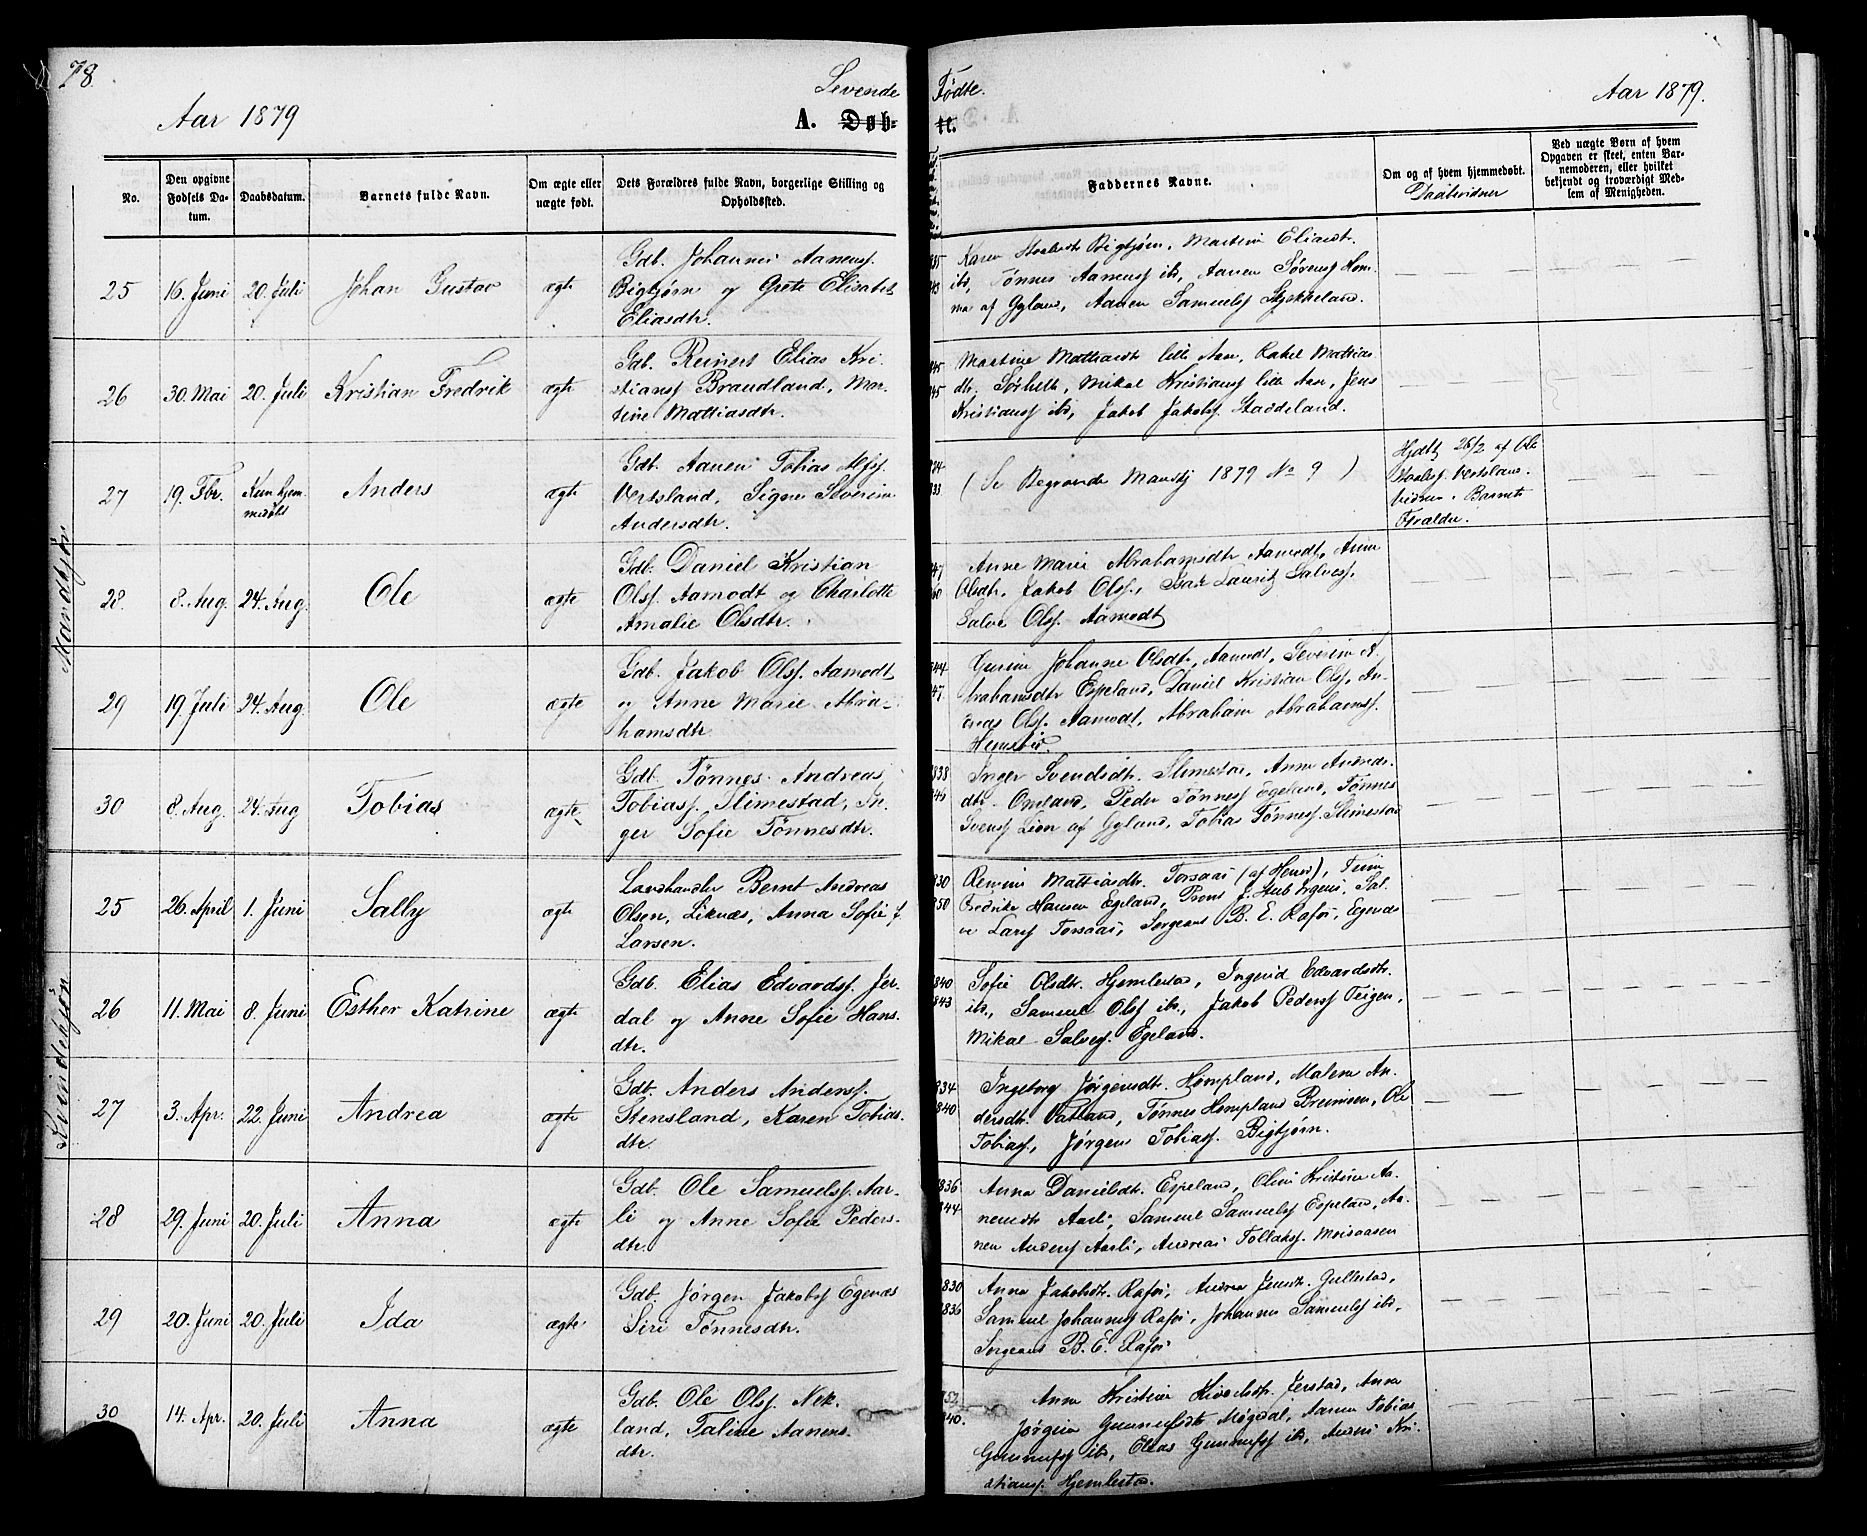 78.
Levende Fødte.
Aar 1879
A. Døb- te.
Aar 1879.
No.
Den opgivne Fødsels Da-tum.
Daabsdatum.
Barnets fulde Navn.
Om ægte eller uægte født.
Dets Forældres fulde Navn, borgerlige Stilling og Opholdssted.
Faddernes Navne.
Om og af hvem hjemmedøbt.
Daabsvidner
Ved uægte Børn af hvem Opgaven er skeet, enten Bar-nemoderen, eller hvilket bekjendt og troværdigt Med-lem af Menigheden.
Mandkjøn
25 16. Juni 20. Juli Johan Gustav ægte
Gdb. Johannes Aanensf.
Bigtjørn og Grete Elisabet
Eliasdtr.
Karen Bigtjørn, Martine Eliasdtr.
ibr, Tønnes Aanensf ibr, Aanen Sørensf Hom-
me af Gyland, Aanen Samuelsf
26 30. Mai 20. Juli Kristian Fredrik ægte
Gdb. Reinert Elias Kri-
stiansf Braudland, Mar-
tine Mattiasdtr.
45
45
Martine Mattiasdtr lille Aas, Rakel Mattias
dtr. Mikal Kristiansf lille Aas, Jens
Kristiansf ibr, Jakob Jakobsf. Staddeland.
27 19. Fbr. Kun hjem-medøbt Anders ægte
Gdb. Aanen Tobias Alfsf.
Versland, Signe Severine
Andersdtr.
(Se Begravede Mandkj 1879 No 9)
Hjdbt 26/2 af Ole
Barnets
Forældre.
28. 8. Aug. 24. Aug. Ole ægte
Gdb. Daniel Kristian
Olsf. Aamodt og Charlotte
Amalie Olsdtr.
47
60
Anne Marie Abrahamsdtr Aamodt, Anne
Olsdtr, Jakob Olsf., Isak Lauritz Salvesf.
Salve Olsf. Aamodt
29 19. Juli 24. Aug. Ole ægte
Gdb. Jakob Olsf. Aamodt
og Anne Marie Abra-
hamsdtr.
44
47
Johanne Olsdtr, Aamodt, Severine A-
brahamsdtr Espeland, Daniel Kristian Olsf, An-
dreas Olsf. Aamodt, Abraham Abrahamsf.
30 8. Aug. 24. Aug Tobias ægte
Gdb. Tønnes Andreas
Tobiasf. Slimestad, In-
ger Sofie Tønnesdtr.
838
Inger Svendsdtr. Slimestad, Anne Andreas
dtr. Omland, Peder Tønnesf Egeland, Tønnes
Svensf Lien af Gyland, Tobias Tønnesf. Slimestad
Kvindekjøn
25 26. April 1. Juni Sally ægte
Landhandler Bernt Andreas
Olsen, Liknæs, Anna Sofie f.
Larsen.
830
850
Mattiasdtr. Torsaas (af Hered),
Fredrikke Hansen Egeland, Sal-
ve Larsf Torsaas, Sergeant B. E. Rafos, Egenæs
26 11. Mai 8. Juni Esther Katrine ægte
Gdb. Elias Edvardsf. Jer-
dal og Anne Sofie Hans-
dtr.
840
843
Sofie Olsdtr. Hjemlestad, Ingerid Edvardsdtr.
ibr., Samuel Olsf ibr., Jakob Pedersf Teigen,
Mikal Salvesf. Egeland.
27 3. Apr. 22. Juni Andrea ægte
Gdb. Anders Andersf.
Stensland, Karen Tobias-
dtr.
834
840
Ingeborg Jørgensdtr. Hompland, Malene An-
dersdtr. Vatland, Tønnes Hompland Breimoen, Ole
Tobiasf, Jørgen Tobiasf. Bigtjørn.
28 29. Juni 20. Juli Anna ægte
Gdb. Ole Samuelsf. Aar-
li og Anne Sofie Peders-
dtr.
836
844
Anna Danielsdtr. Espeland, Oline Kristine Aa-
nensdtr Aarli, Samuel Samuelsf Espeland, Aa-
nen Andersf Aarli, Andreas Tollaksf. Moisaasen
29 20. Juni 20. Juli Ida ægte
Gdb. Jørgen Jakobsf Egenæs
Siri Tønnesdtr.
1830
1836
Anna Jakobsdtr. Rafos, Andrea Jensdtr. Gullestad,
Samuel Johannesf Rafos, Johannes Samuelsf ibr,
Sergeant B. E. Rafos
30 14. Apr. 20. Juli Anna ægte
Gdb. Ole Olsf. Nek-
land, Taline Aanens-
dtr.
40.
Anne Kristine Jerstad, Anne
Jørgine Gunnufsdtr Møgedal, Aanen Tobias
Gunnufsf ibr, Elias Gunnufsf ibr, Andreas Kri-
stiansf. Hjemlestad.